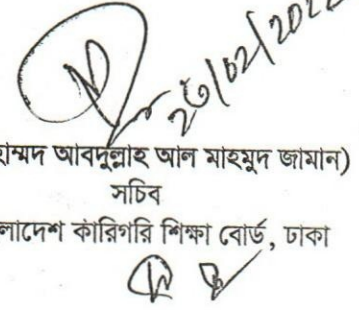 26/02/2022
হাম্মদ আবদুল্লাহ আল মাহমুদ জামান)
সচিব
লাদেশ কারিগরি শিক্ষা বোর্ড, ঢাকা